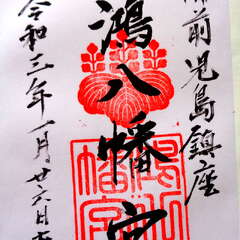 備前児島鎮座
鴻八幡宮
令和三年一月廿六日
鴻八
幡宮